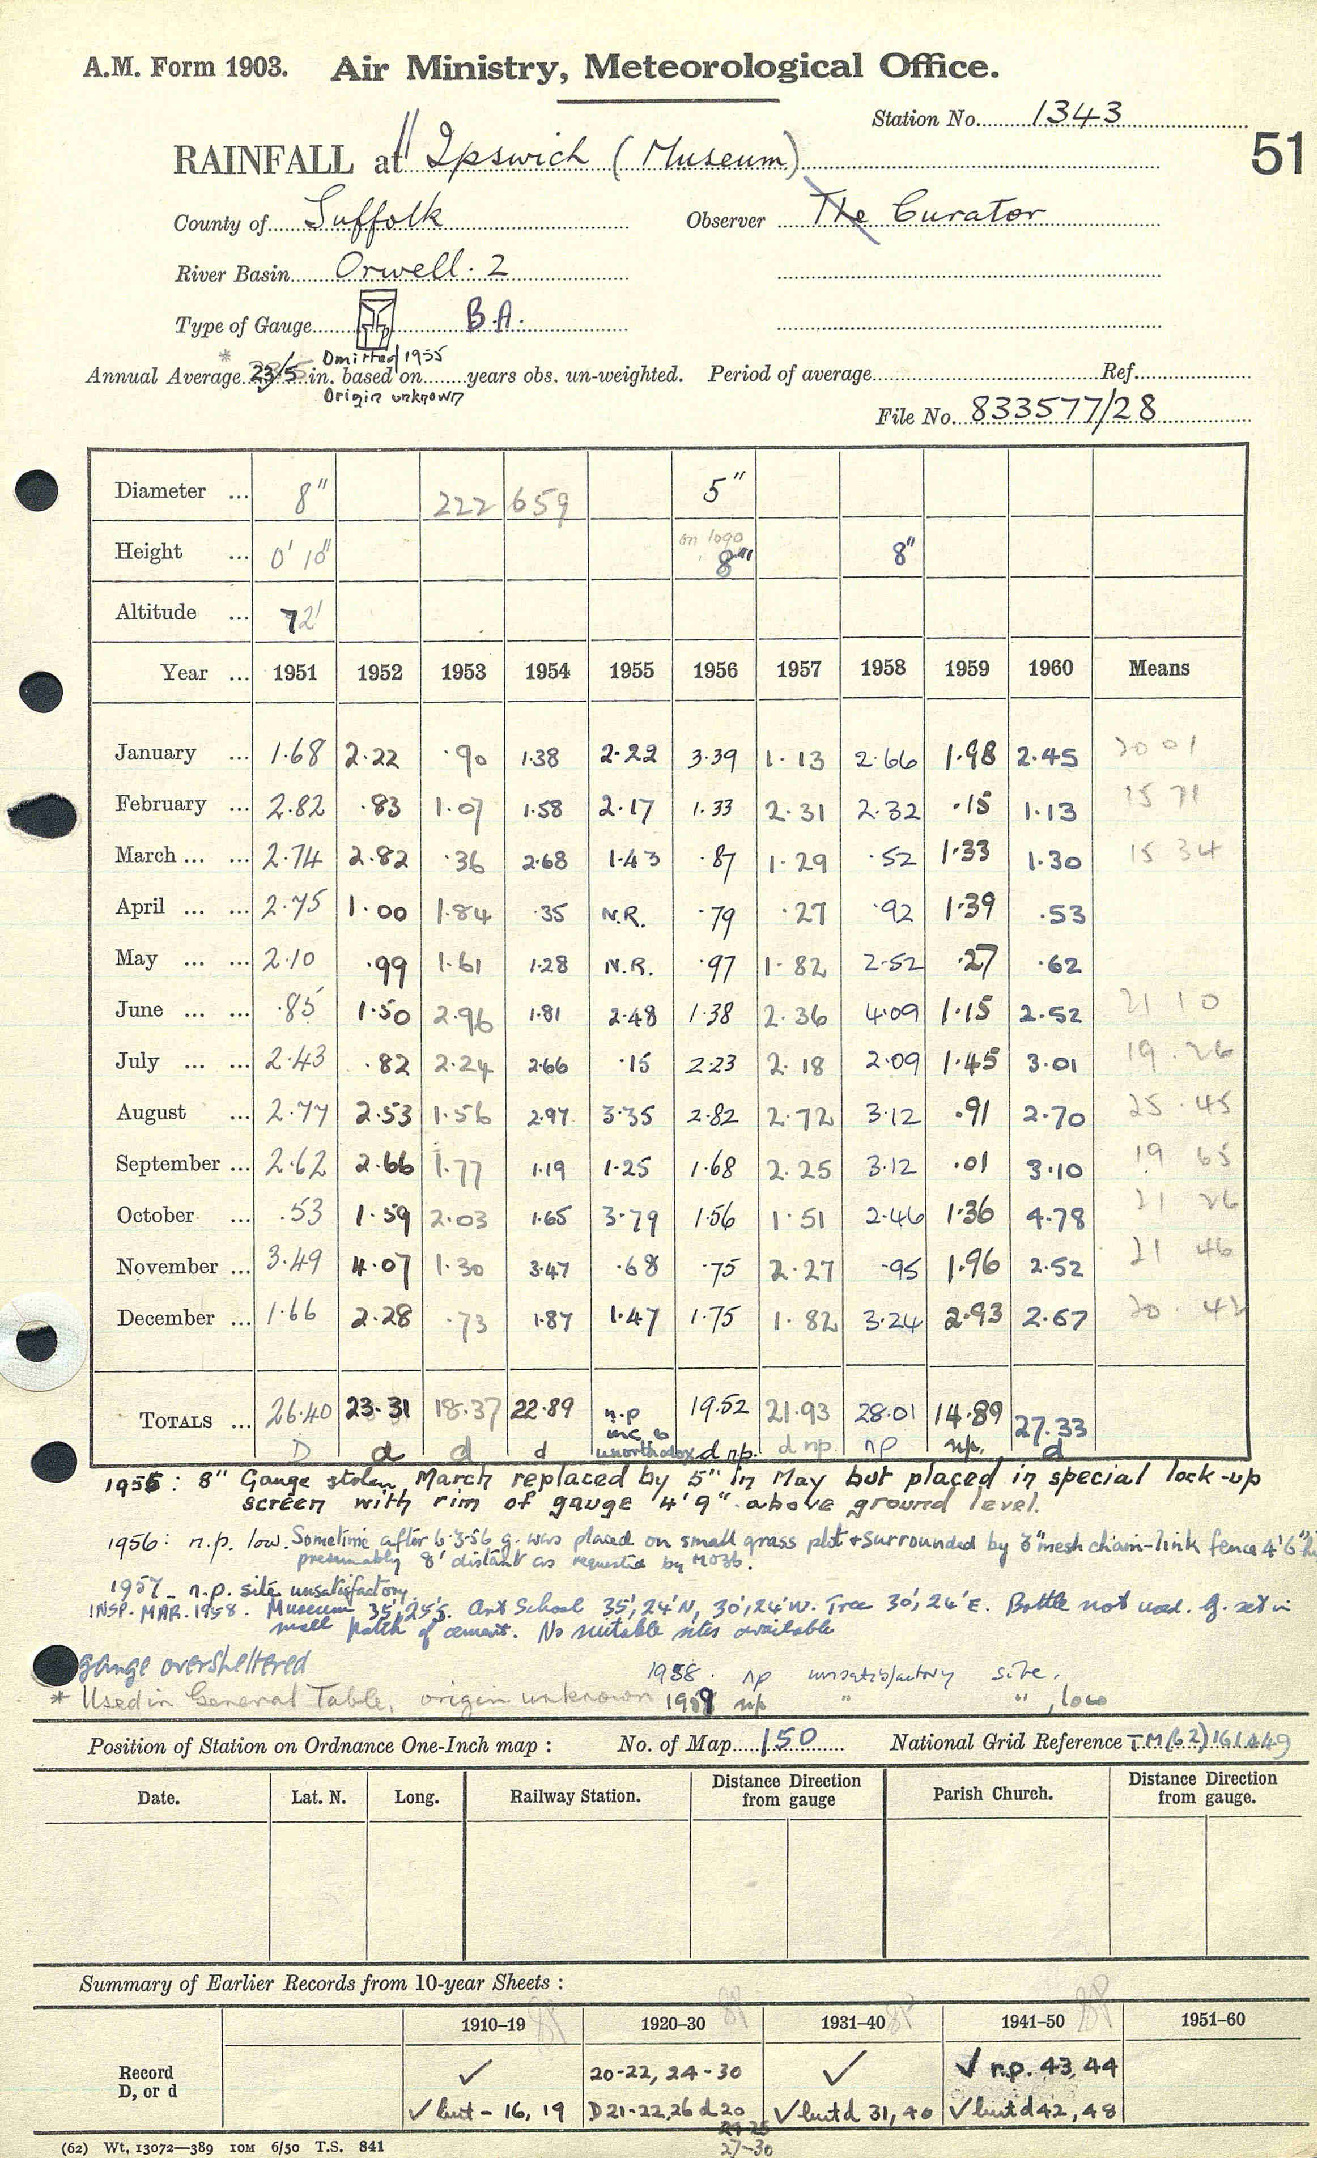 A.M. Form 1903. Air Ministry, Meteorological Office.
Station No. 1343
51
RAINFALL at Ipswich (Museum)
County of Suffolk Observer The Curator
River Basin Orwell. 2
Type of Gauge B.A.
Omitted 1955
* Annual Average 23.5 in. based on years obs. un-weighted. Period of average Ref.
Origin unknown
File No. 833577/28
Diameter ... 8" 222 659 5"
Height ... 0' 10" 8" 8"
Altitude ... 72'
Year ... 1951 1952 1953 1954 1955 1956 1957 1958 1959 1960 Means
January ... 1.68 2.22 .90 1.38 2.22 3.39 1.13 2.66 1.98 2.45 20 01
February ... 2.82 .83 1.07 1.58 2.17 1.33 2.31 2.32 .15 1.13 15 71
March ... ... 2.74 2.82 .36 2.68 1.43 .87 1.29 .52 1.33 1.30 15 34
April ... ... 2.75 1.00 1.84 .35 N.R. .79 .27 .92 1.39 .53
May ... ... 2.10 .99 1.61 1.28 N.R. .97 1.82 2.52 .27 .62
June ... ... .85 1.50 2.96 1.81 2.48 1.38 2.36 4.09 1.15 2.52 21 10
July ... ... 2.43 .82 2.24 2.66 .15 2.23 2.18 2.09 1.45 3.01 19.26
August ... 2.77 2.53 1.56 2.97 3.35 2.82 2.72 3.12 .91 2.70 25.45
September ... 2.62 2.66 1.77 1.19 1.25 1.68 2.25 3.12 .01 3.10 19 65
October ... .53 1.59 2.03 1.65 3.79 1.56 1.51 2.46 1.36 4.78 21 26
November ... 3.49 4.07 1.30 3.47 .68 .75 2.27 .95 1.96 2.52 21 46
December ... 1.66 2.28 .73 1.87 1.47 1.75 1.82 3.24 2.93 2.67 20.42
TOTALS ... 26.40 23.31 18.37 22.89 n.p 19.52 21.93 28.01 14.89 27.33
D d d d unorthodox d np. d np. np np. d
1955: 8" Gauge stolen March replaced by 5" in May but placed in special lock-up
screen with rim of gauge 4'9" above ground level.
1956: n.p. low. Sometime after 6.3.56 g. was placed on small grass plot + surrounded by 3" mesh chain-link fence 4'6"
presumably 8' distant as requested by MO3b.
1957 - n.p. site unsatisfactory
INSP. MAR. 1958. Museum 35', 25'S. Art School 35', 24'N, 30', 24'W. Tree 30', 26'E. Bottle not used. G. set in
small patch of cement. No suitable sites available
gauge oversheltered 1958. np unsatisfactory site.
* Used in General Table, origin unknown 1959 np " ", low
Position of Station on Ordnance One-Inch map : No. of Map 150 National Grid Reference TM(62)161449
Date. Lat. N. Long. Railway Station. Distance Direction from gauge Parish Church. Distance Direction from gauge.
Summary of Earlier Records from 10-year Sheets :
1910–19 1920–30 1931–40 1941–50 1951–60
Record ✓ 20-22, 24-30 ✓ ✓ n.p. 43, 44
D, or d ✓ but - 16, 19 D21-22,26 d 20 ✓ but d 31, 40 ✓ but d 42, 48
27-30
(62) Wt. 13072—389 10M 6/50 T.S. 841